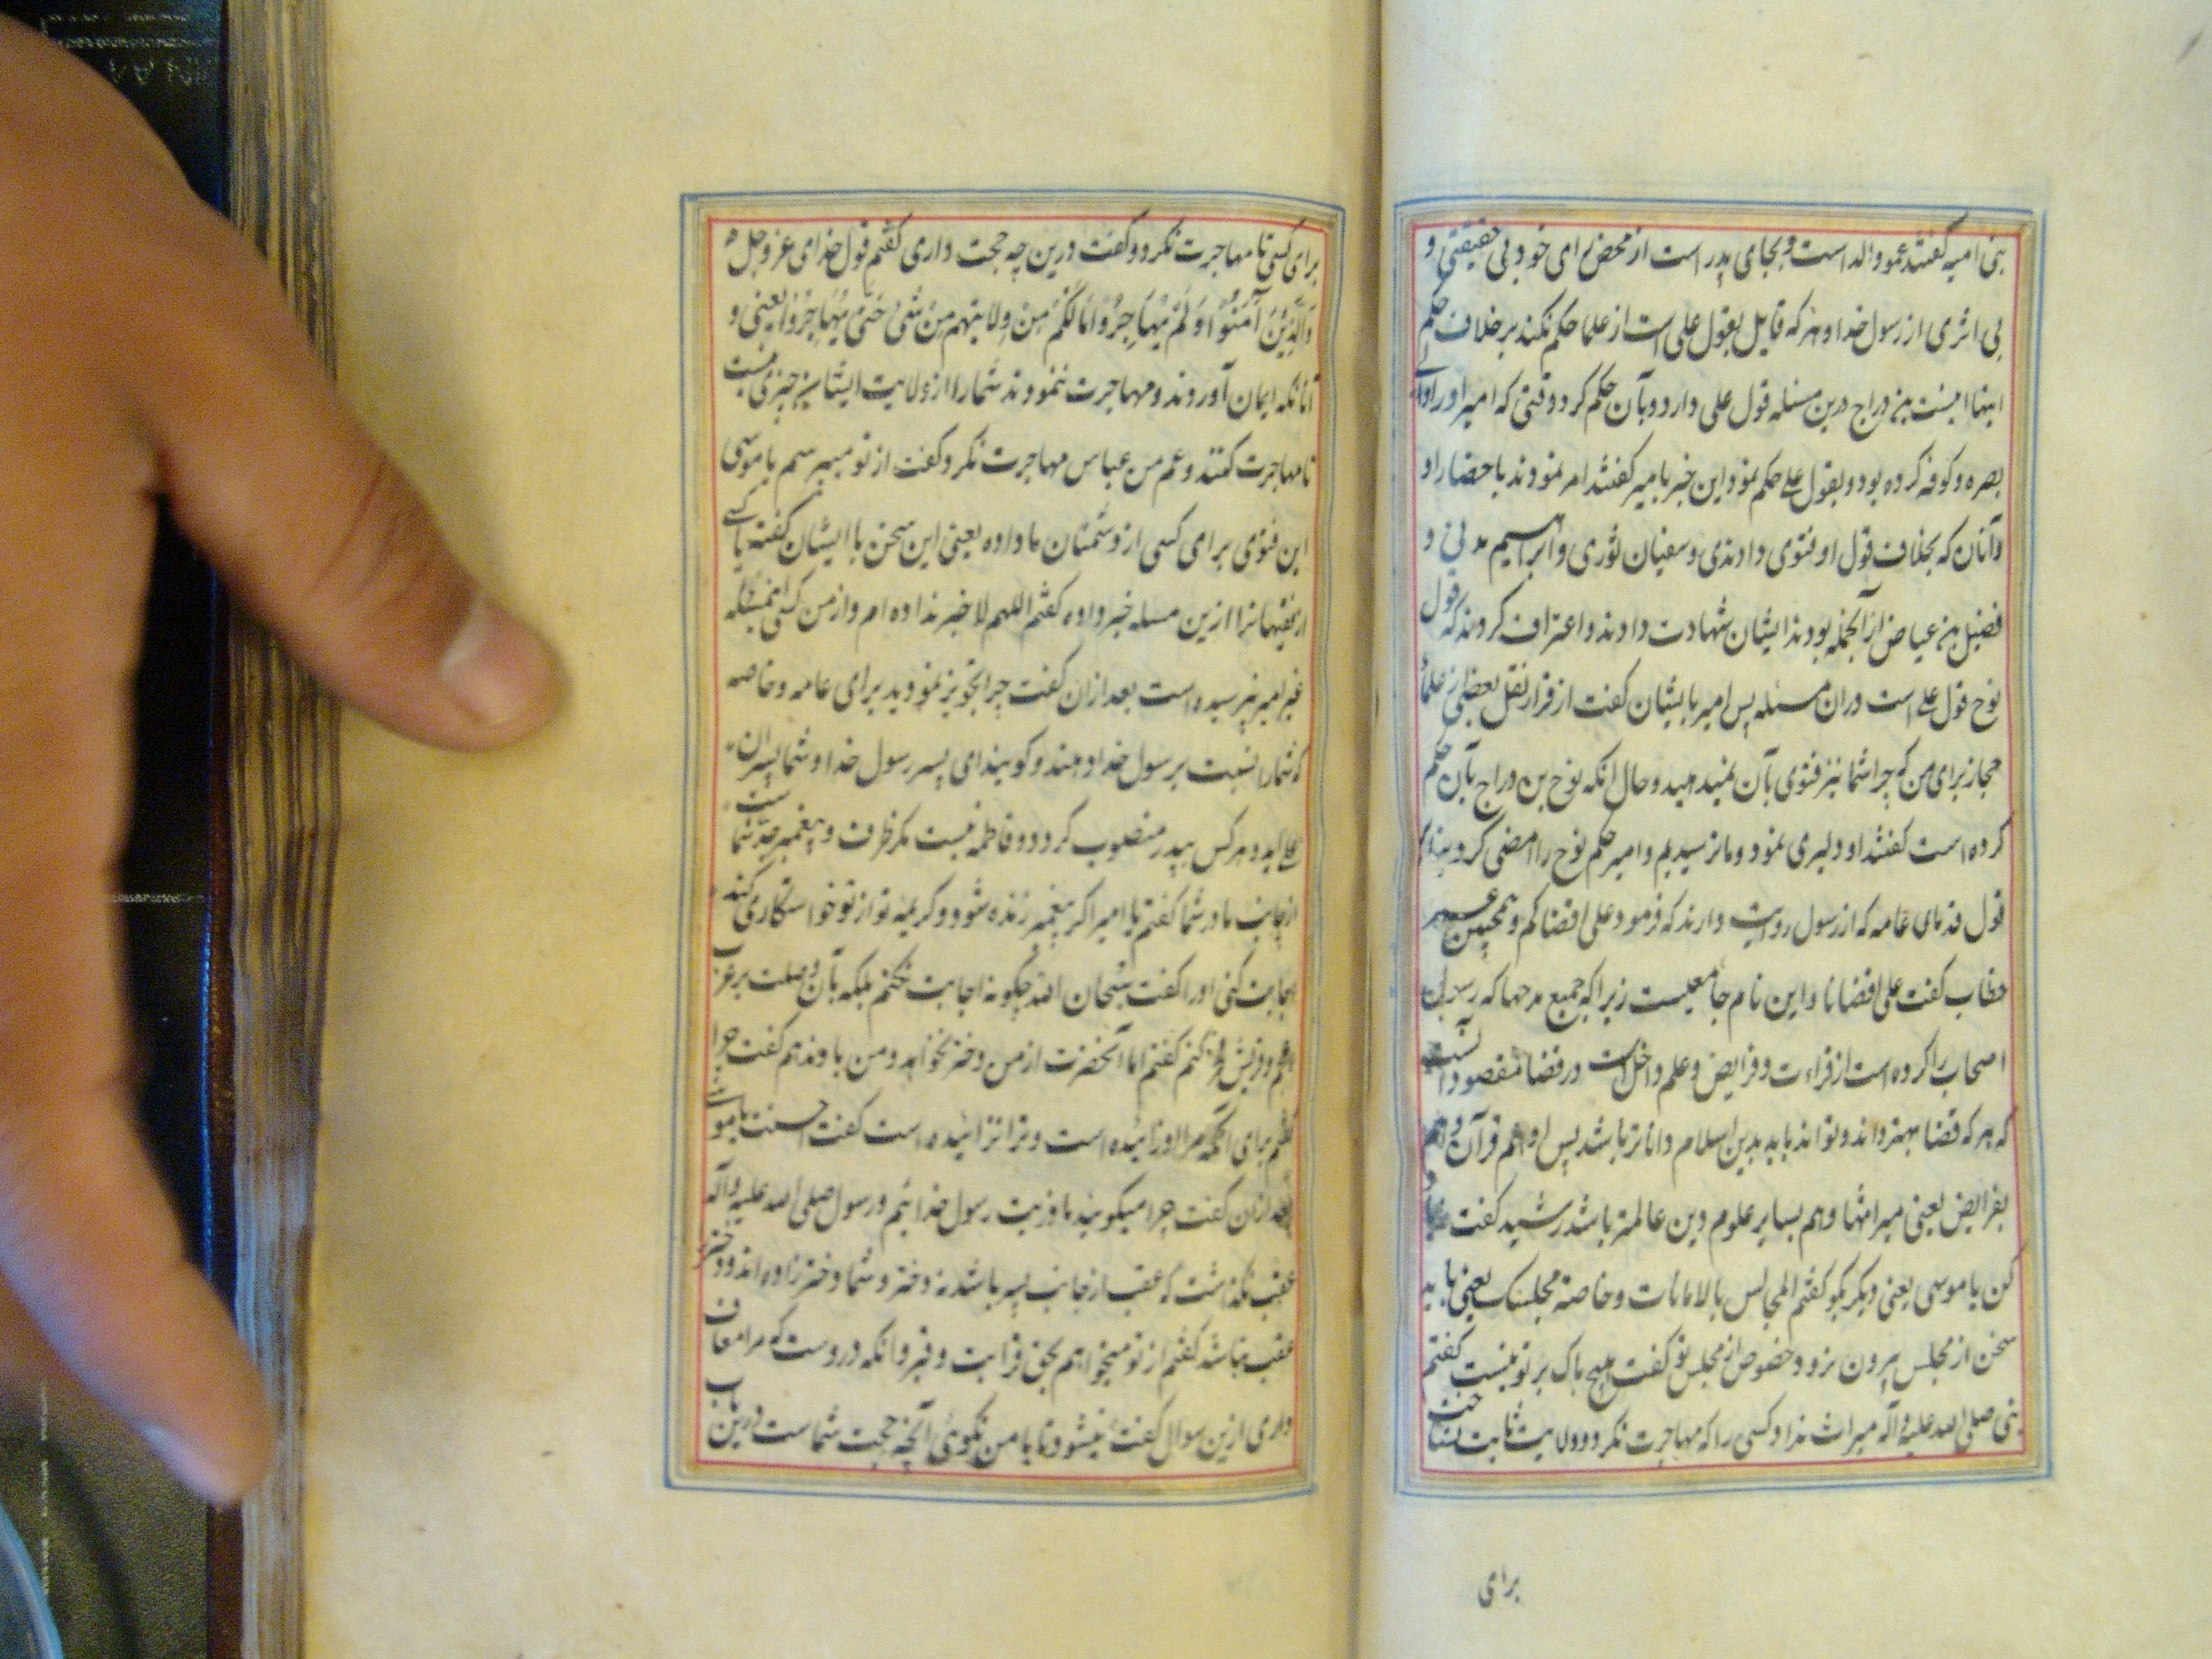 بنی امیه گفتند عمو والد است و بجای پدر است از محض رای خود بی حقیقتی و
بی اثری از رسول خدا و هر که قایل بقول علی است از علما حکم نکند بر خلاف حکم
اینها اینست بن دراج درین مسئله قول علی دارد و بآن حکم کرد و وقتی که امیر او را والی
بصره و کوفه کرده بود و بقول علی حکم نمود این خبر بامیر گفتند امر نمودند باحضار او
و آنان که بخلاف قول او فتوی دادندی و سفیان ثوری و ابراهیم مدنی و
فضیل بن عیاض از آنجمله بودند ایشان شهادت دادند و اعتراف کردند که قول
نوح قول علی است در ان مسئله پس امیر بایشان گفت از قرار نقل بعضی از علمای
حجاز برای من که چرا شما نیز فتوی بآن نمیدهید و حال انکه نوح بن دراج بآن حکم
کرده است گفتند او دلیری نمود و ما ترسیدیم و امیر حکم نوح را امضی کرد
قول قدمای عامه که از رسول روایت دارند که فرمود علی اقضاکم و همچنین عمر
خطاب گفت علی اقضانا و این نام جامعیست زیرا که جمیع مدحها که رسول
اصحاب را کرده است از قراءت و فرایض و علم داخل است در قضا مقصود آنست
که هر که قضا بهتر داند و تواند باید بدین اسلام داناتر باشد پس او هم قرآن و هم
بفرایض یعنی میراثها و هم بسایر علوم دین عالمتر باشد رشید گفت
کن یا موسی یعنی دیگر بگو گفتم المجالس بالامانات و خاصة مجلسک یعنی باید
سخن از مجلس بیرون نرود و خصوص از مجلس تو گفت هیچ باک بر تو نیست گفتم
نبی صلی الله علیه و آله میراث نداد کسی را که مهاجرت نکرد و ولایت ثابت نساخت
برای
برای کسی تا مهاجرت نکرد و گفت درین چه حجت داری گفتم قول خدای عز و جل
وَالَّذِیْنَ آمَنُوْا وَلَمْ یُهٰاجِرُوْا مٰالَکُمْ مِنْ وِلایتِهِم مِنْ شَیْءٍ حَتّیٰ یُهٰاجِرُوْا یعنی و
آنانکه ایمان آوردند و مهاجرت ننمودند شما را از ولایت ایشان چیزی نیست
تا مهاجرت کنند و عم من عباس مهاجرت نکرد گفت از تو میپرسم یا موسی
این فتوی برای کسی از دشمنان ما داده یعنی این سخن با ایشان گفته یا کسی
از فقها را ازین مسله خبر داده گفتم اللهم لا خبر نداده ام و از من کسی اینمسئله
غیر امیر نپرسیده است بعد ازان گفت چرا تجویز نمودید برای عامه و خاصه
که شما را نسبت برسول خدا دهند و گویند ای پسر رسول خدا و شما پسران
علی اید و هر کس بپدر منصوب گردد و فاطمه نیست مگر ظرف و پیغمبر جد شماست
از جانب مادر شما گفتم یا امیر اگر پیغمبر زنده شود و کریمه تو از تو خواستگاری کند
اجابت کنی او را گفت سُبحان الله چگونه اجابت نکنم بلکه بآن وصلت بر عرب
و عجم و قریش فخر کنم گفتم اما آنحضرت از من دختر نخواهد و من باو ندهم گفت چرا
گفتم برای آنکه مرا او زائیده است و ترا نزائیده است گفت احسنت یا موسی
بعد ازان گفت چرا میگویند ما ذریت رسول خدائیم و رسول صلی الله علیه و آله
عقب نگذاشت که عقب از جانب پسر باشد نه دختر و شما دختر زاده اند و دختر
عقب نباشد گفتم از تو میخواهم بحق قرابت و قبر و انکه دروست که مرا معاف
داری ازین سوال گفت نمیشود تا با من نگوئی آنچه حجت شماست درین باب